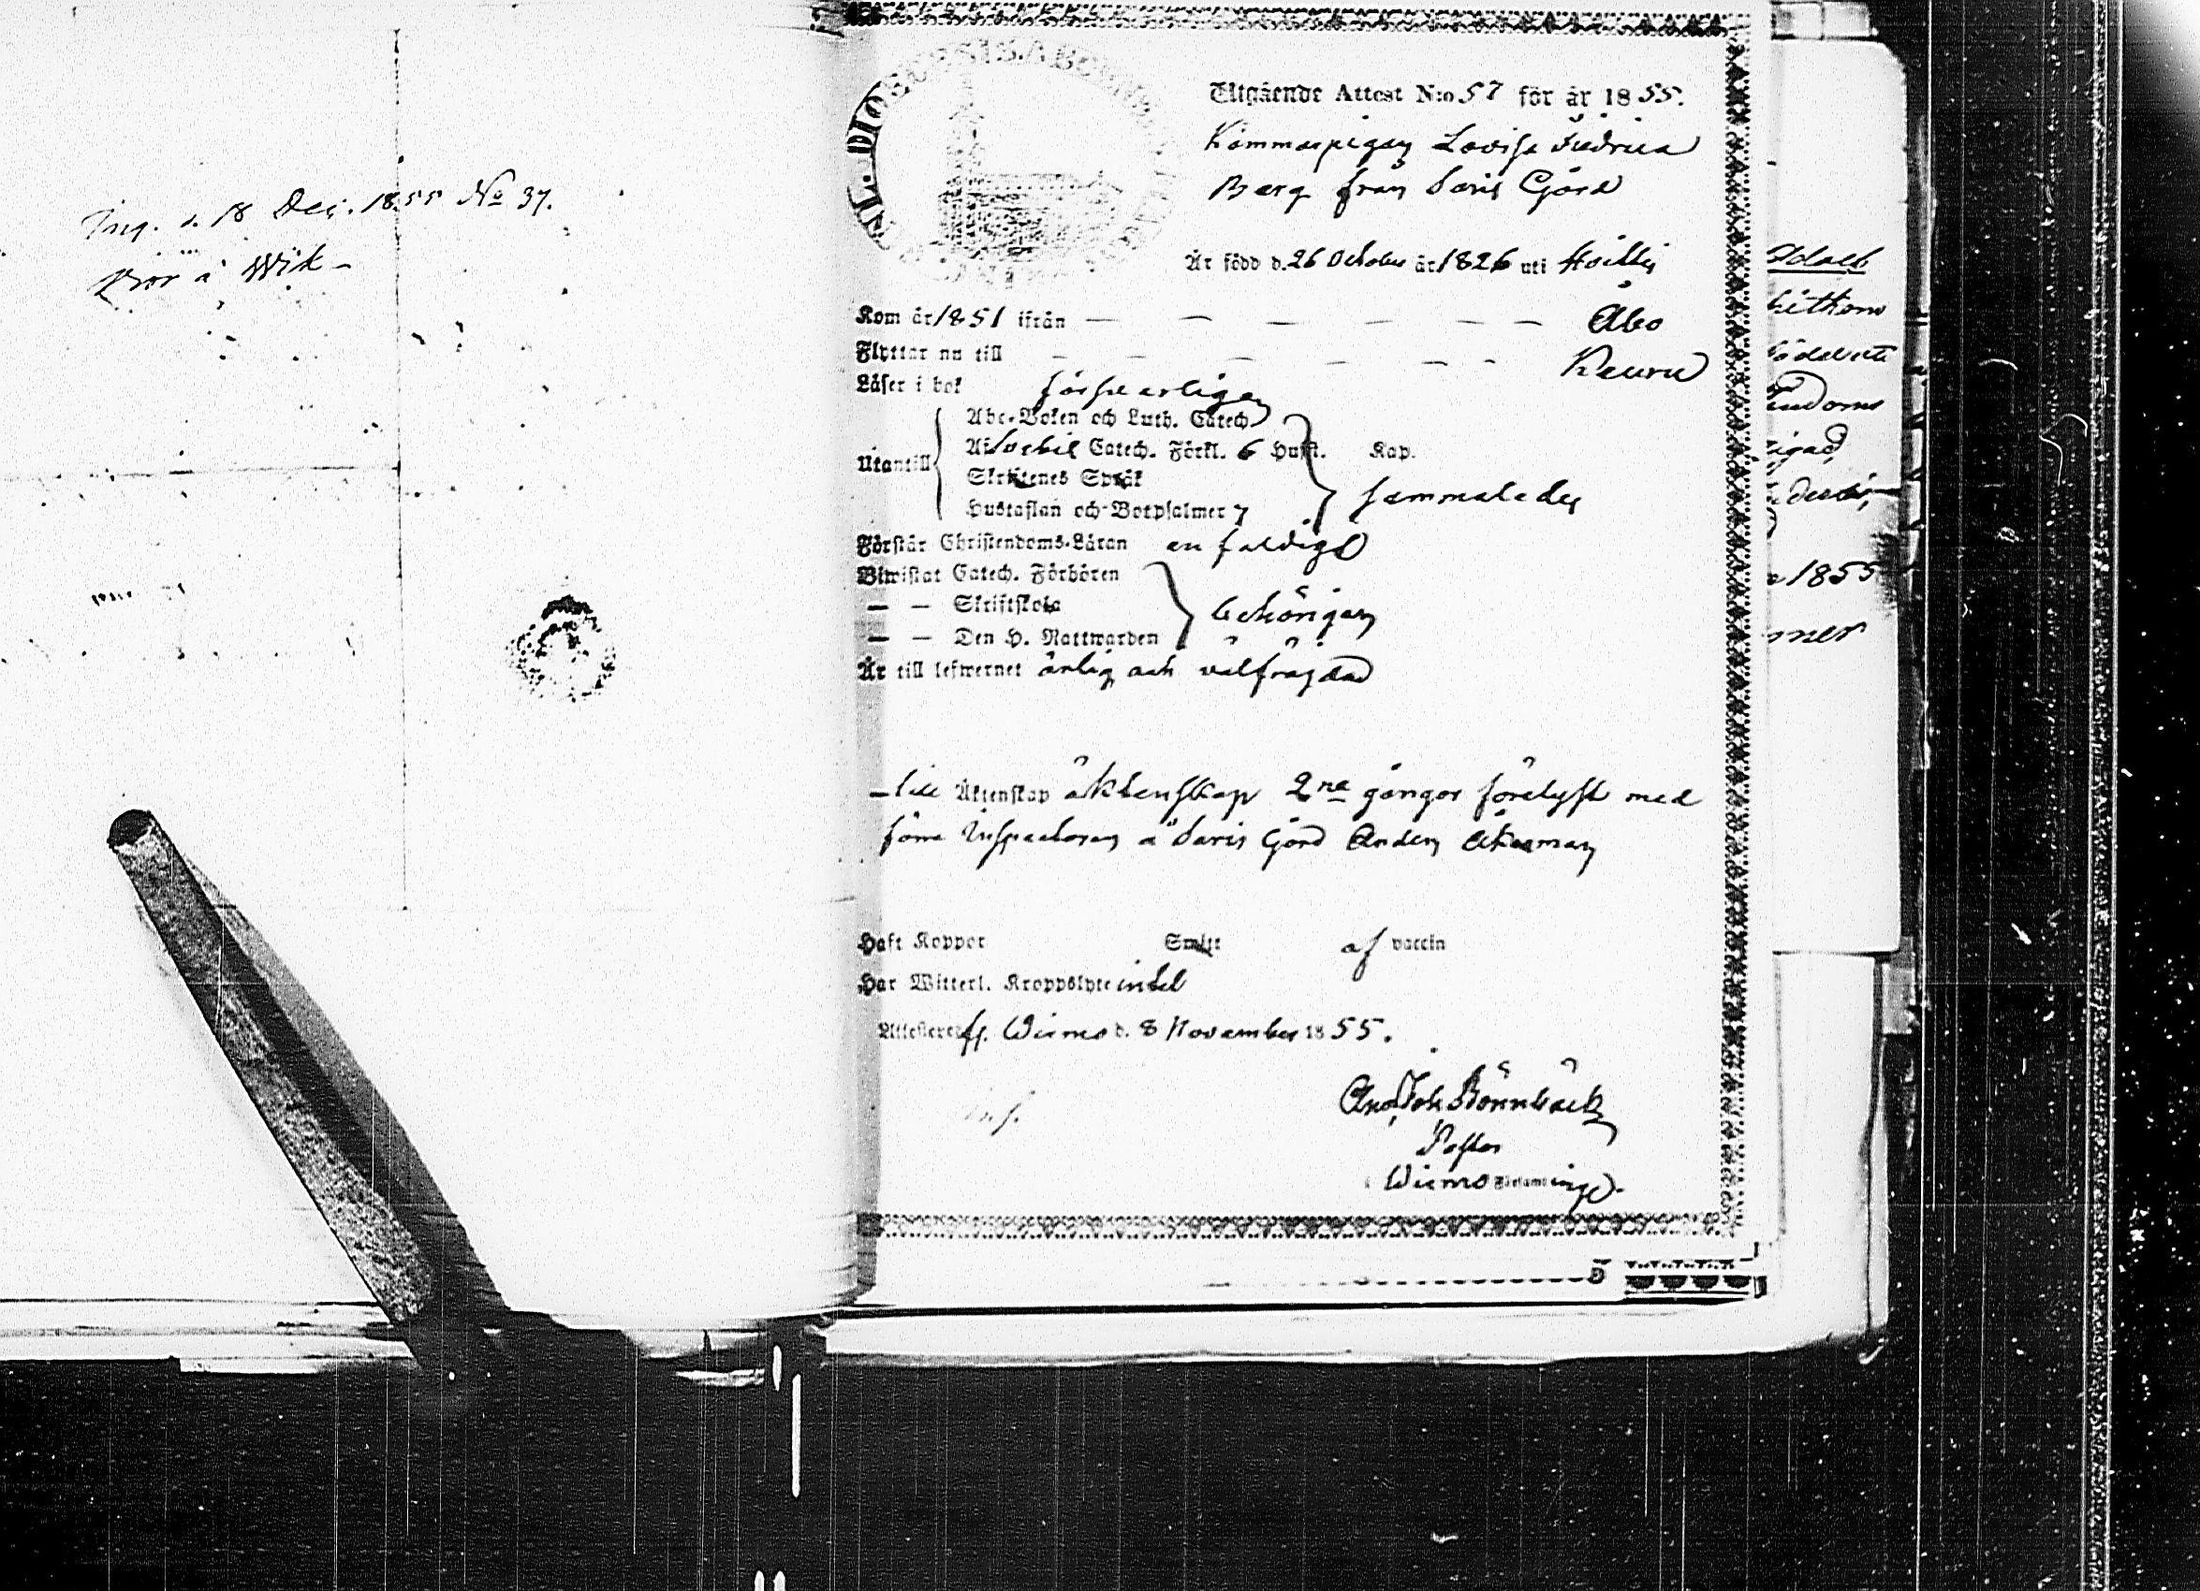 Ing. d. 18 Dec. 1855 No 37.
Bror å Wik
Utgående Attest N:o 57 för år 1855.
Kammarpigan Lovisa Fredrica
Berg från Saris Gård
Är född d. 26 October år 1826 uti
Kom år 1851 ifrån — — — — — — Åbo
Flyttar nu till — — — — — — Keuru
Läser i bok försvarligen
Abc-Boken och Luth. Catech.
Utantill Catech. Förkl. 6 Hufst. Kap.
Skriftenes Språk
Hustaflan och Botpsalmer 7
sammaledes
Förstår Christendoms-Läran enfaldigt
Biwistat Catech. Förhören
— — Skriftskola behörigen
— — Den H. Nattwarden
Är till lefwernet ärlig och välfrägdad
— till Äktenskap äktenskap 2ne gånger förelyst med
förre Inspectoren å Saris Gård Anders Åkerman
Haft Koppor Smitt af vaccin
Har Witterl. Kroppslyte intet
Attesterar Wirmo d. 8 November 1855.
And. Joh. Rönnbäck
Pastor
Wirmo
1855